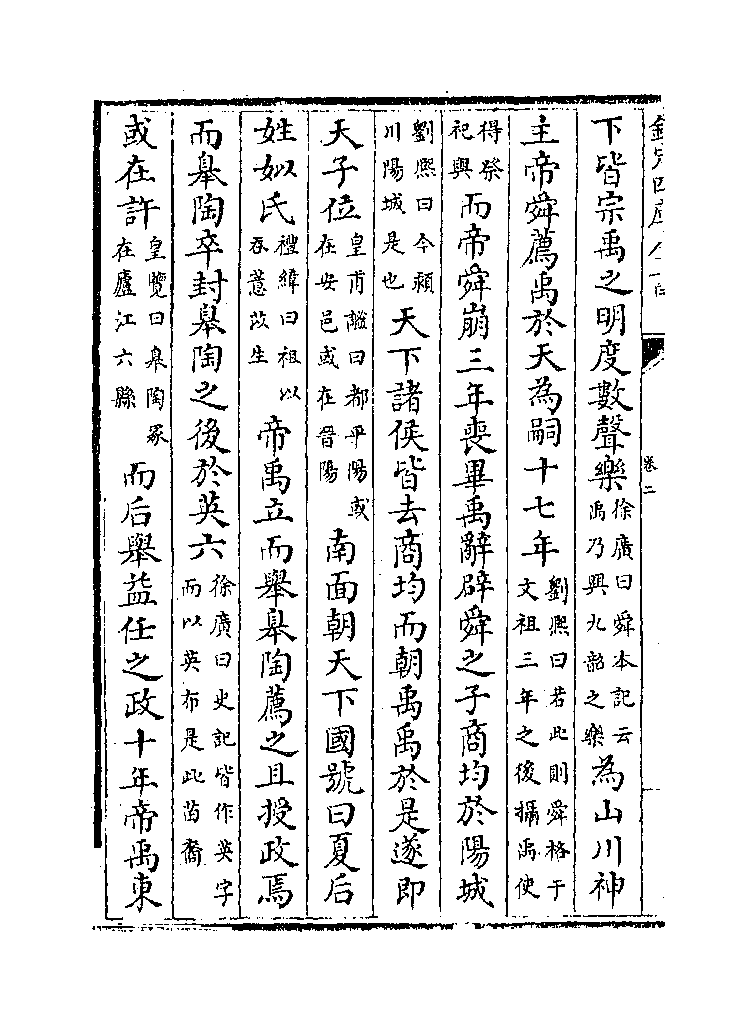 欽定四庫全書
卷二
下皆宗禹之明度數聲樂徐廣曰舜本記云禹乃興九韶之樂為山川神
主帝舜薦禹於天為嗣十七年劉熙曰若此則舜格于文祖三年之後攝禹使
得祭祀與而帝舜崩三年喪畢禹辭辟舜之子商均於陽城
劉熙曰今潁川陽城是也天下諸侯皆去商均而朝禹禹於是遂即
天子位皇甫謐曰都平陽或在安邑或在晉陽南面朝天下國號曰夏后
姓姒氏禮緯曰祖以吞薏苡生帝禹立而舉皋陶薦之且授政焉
而皋陶卒封皋陶之後於英六徐廣曰史記皆作英字而以英布是此苗裔
或在許皇覽曰皋陶冢在廬江六縣而后舉益任之政十年帝禹東